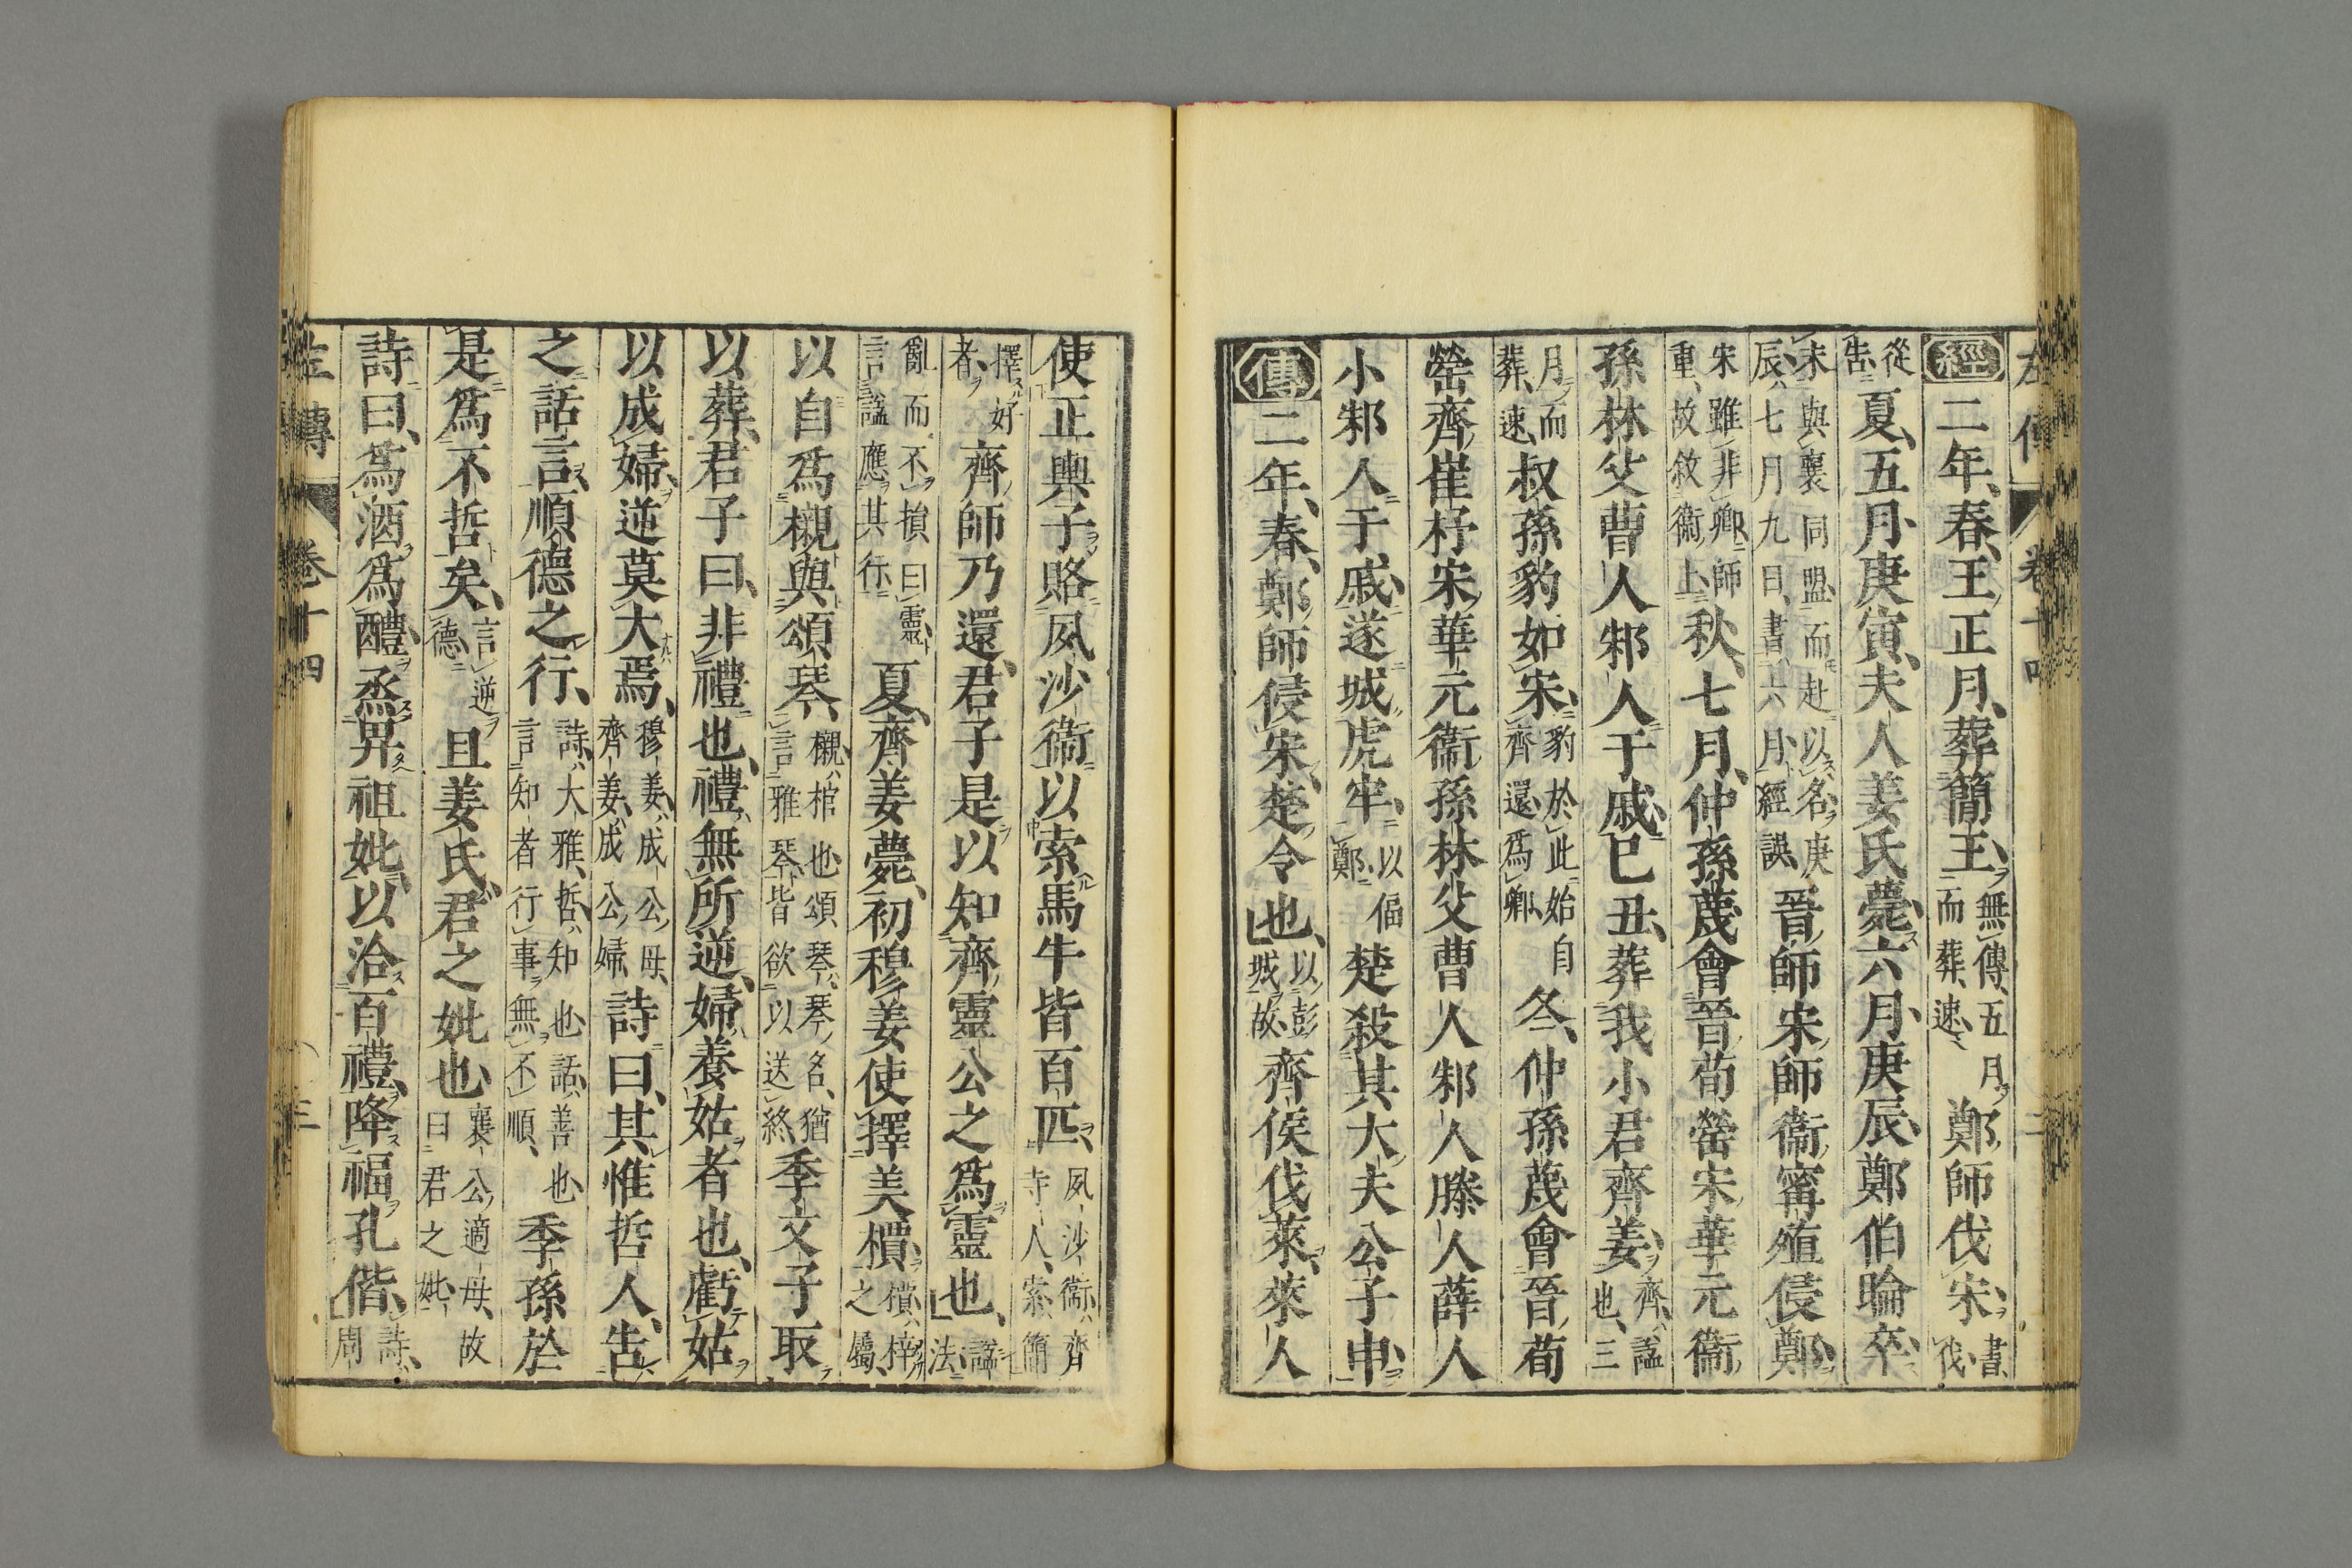 經二年、春、王正月、葬簡王、無傳、五月而葬、速、鄭師伐宋、書伐
從告、夏、五月、庚寅、夫人姜氏薨、六月、庚辰、鄭伯睔卒、
未與襄同盟、而赴以名、庚辰、七月九日、書六月、經誤、晉師宋師衞甯殖侵鄭、
宋雖非卿、師重、故敘衞上、秋、七月、仲孫蔑會晉荀罃宋華元衞
孫林父曹人邾人于戚、己丑、葬我小君齊姜、齊、謚也、三
月而葬、速、叔孫豹如宋、豹於此始自齊還爲卿、冬、仲孫蔑會晉荀
罃齊崔杼宋華元衞孫林父曹人邾人滕人薛人
小邾人于戚、遂城虎牢、以偪鄭、楚殺其大夫公子申、
傳二年、春、鄭師侵宋、楚令也、以彭城故、齊侯伐萊、萊人
使正輿子賂夙沙衞以索馬牛皆百匹、夙沙衞、齊寺人、索、簡
擇好者、齊師乃還、君子是以知齊靈公之爲靈也、謚法、
亂而不損曰靈、言謚應其行、夏、齊姜薨、初穆姜使擇美檟、檟、梓之屬、
以自爲櫬與頌琴、櫬、棺也、頌琴、琴名、猶言雅琴、皆欲以送終、季文子取
以葬、君子曰、非禮也、禮、無所逆、婦養姑者也、虧姑
以成婦、逆莫大焉、穆姜、成公母、齊姜、成公婦、詩曰、其惟哲人、告
之話言、順德之行、詩、大雅、哲、知也、話、善也、言知者行事無不順、季孫於
是爲不哲矣、言逆德、且姜氏君之妣也、襄公適母、故曰君之妣、
詩曰、爲酒爲醴、烝畀祖妣、以洽百禮、降福孔偕、詩、周
左傳 卷十四 三